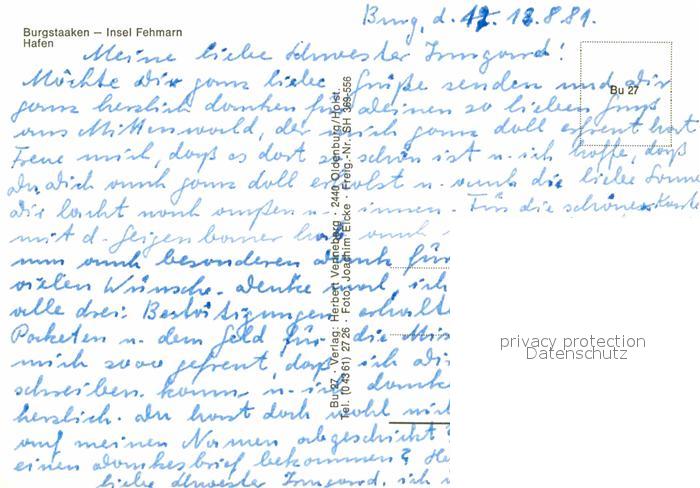 Burgstaaken – Insel Fehmarn
Hafen
Burg, d. 12. 8. 81.
Meine liebe Schwester Irmgard!
Möchte dir ganz liebe Grüße senden und dir
ganz herzlich danken für deinen so lieben Gruß
aus Mittenwald, der mich ganz doll erfreut hat
Freue mich, daß es dort so schön ist u. ich hoffe, daß
du dich auch ganz doll erholst u. auch die liebe Sonne
dir lacht nach außen u. innen. Für die schöne Karte
mit d. Geigenbauer auch
nun auch besonderen Dank für
vielen Wünsche. Denke ich
alle drei Bestätigungen erhalte
Paketen u. dem Geld für die
mich sooo gefreut, daß ich dir
schreiben kann u. ich danke
herzlich. Du hast doch wohl
auf meinen Namen abgeschickt
einen Dankesbrief bekommen?
liebe Schwester Irmgard, ich
Bu 27
Bu 27 · Verlag: Herbert Venneberg · 2440 Oldenburg/Holst.
Tel. (04361) 2726 · Foto: Joachim Eicke · Freig.-Nr. SH 369-556
privacy protection
Datenschutz